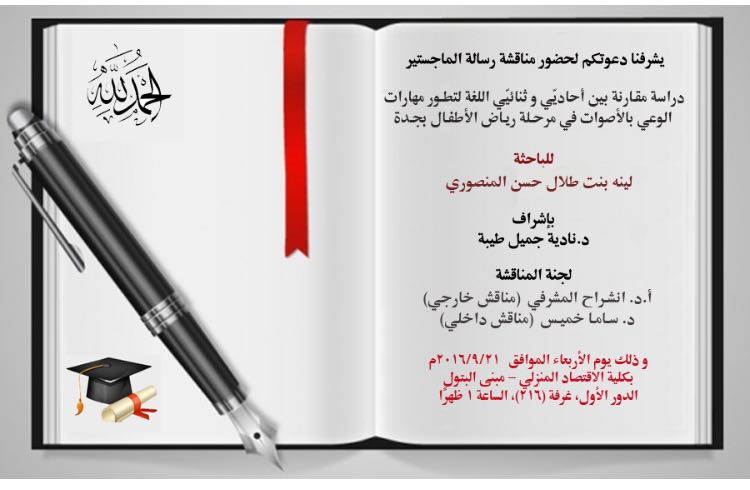 الحمد لله
يشرفنا دعوتكم لحضور مناقشة رسالة الماجستير
دراسة مقارنة بين أحاديّي و ثنائيّي اللغة لتطور مهارات
الوعي بالأصوات في مرحلة رياض الأطفال بجدة
للباحثة
لينه بنت طلال حسن المنصوري
بإشراف
د.نادية جميل طيبة
لجنة المناقشة
أ.د. انشراح المشرفي (مناقش خارجي)
د. ساما خميس (مناقش داخلي)
و ذلك يوم الأربعاء الموافق ٢٠١٦/٩/٢١م
بكلية الاقتصاد المنزلي – مبنى البتول
الدور الأول، غرفة (٢١٦)، الساعة ١ ظهرًا